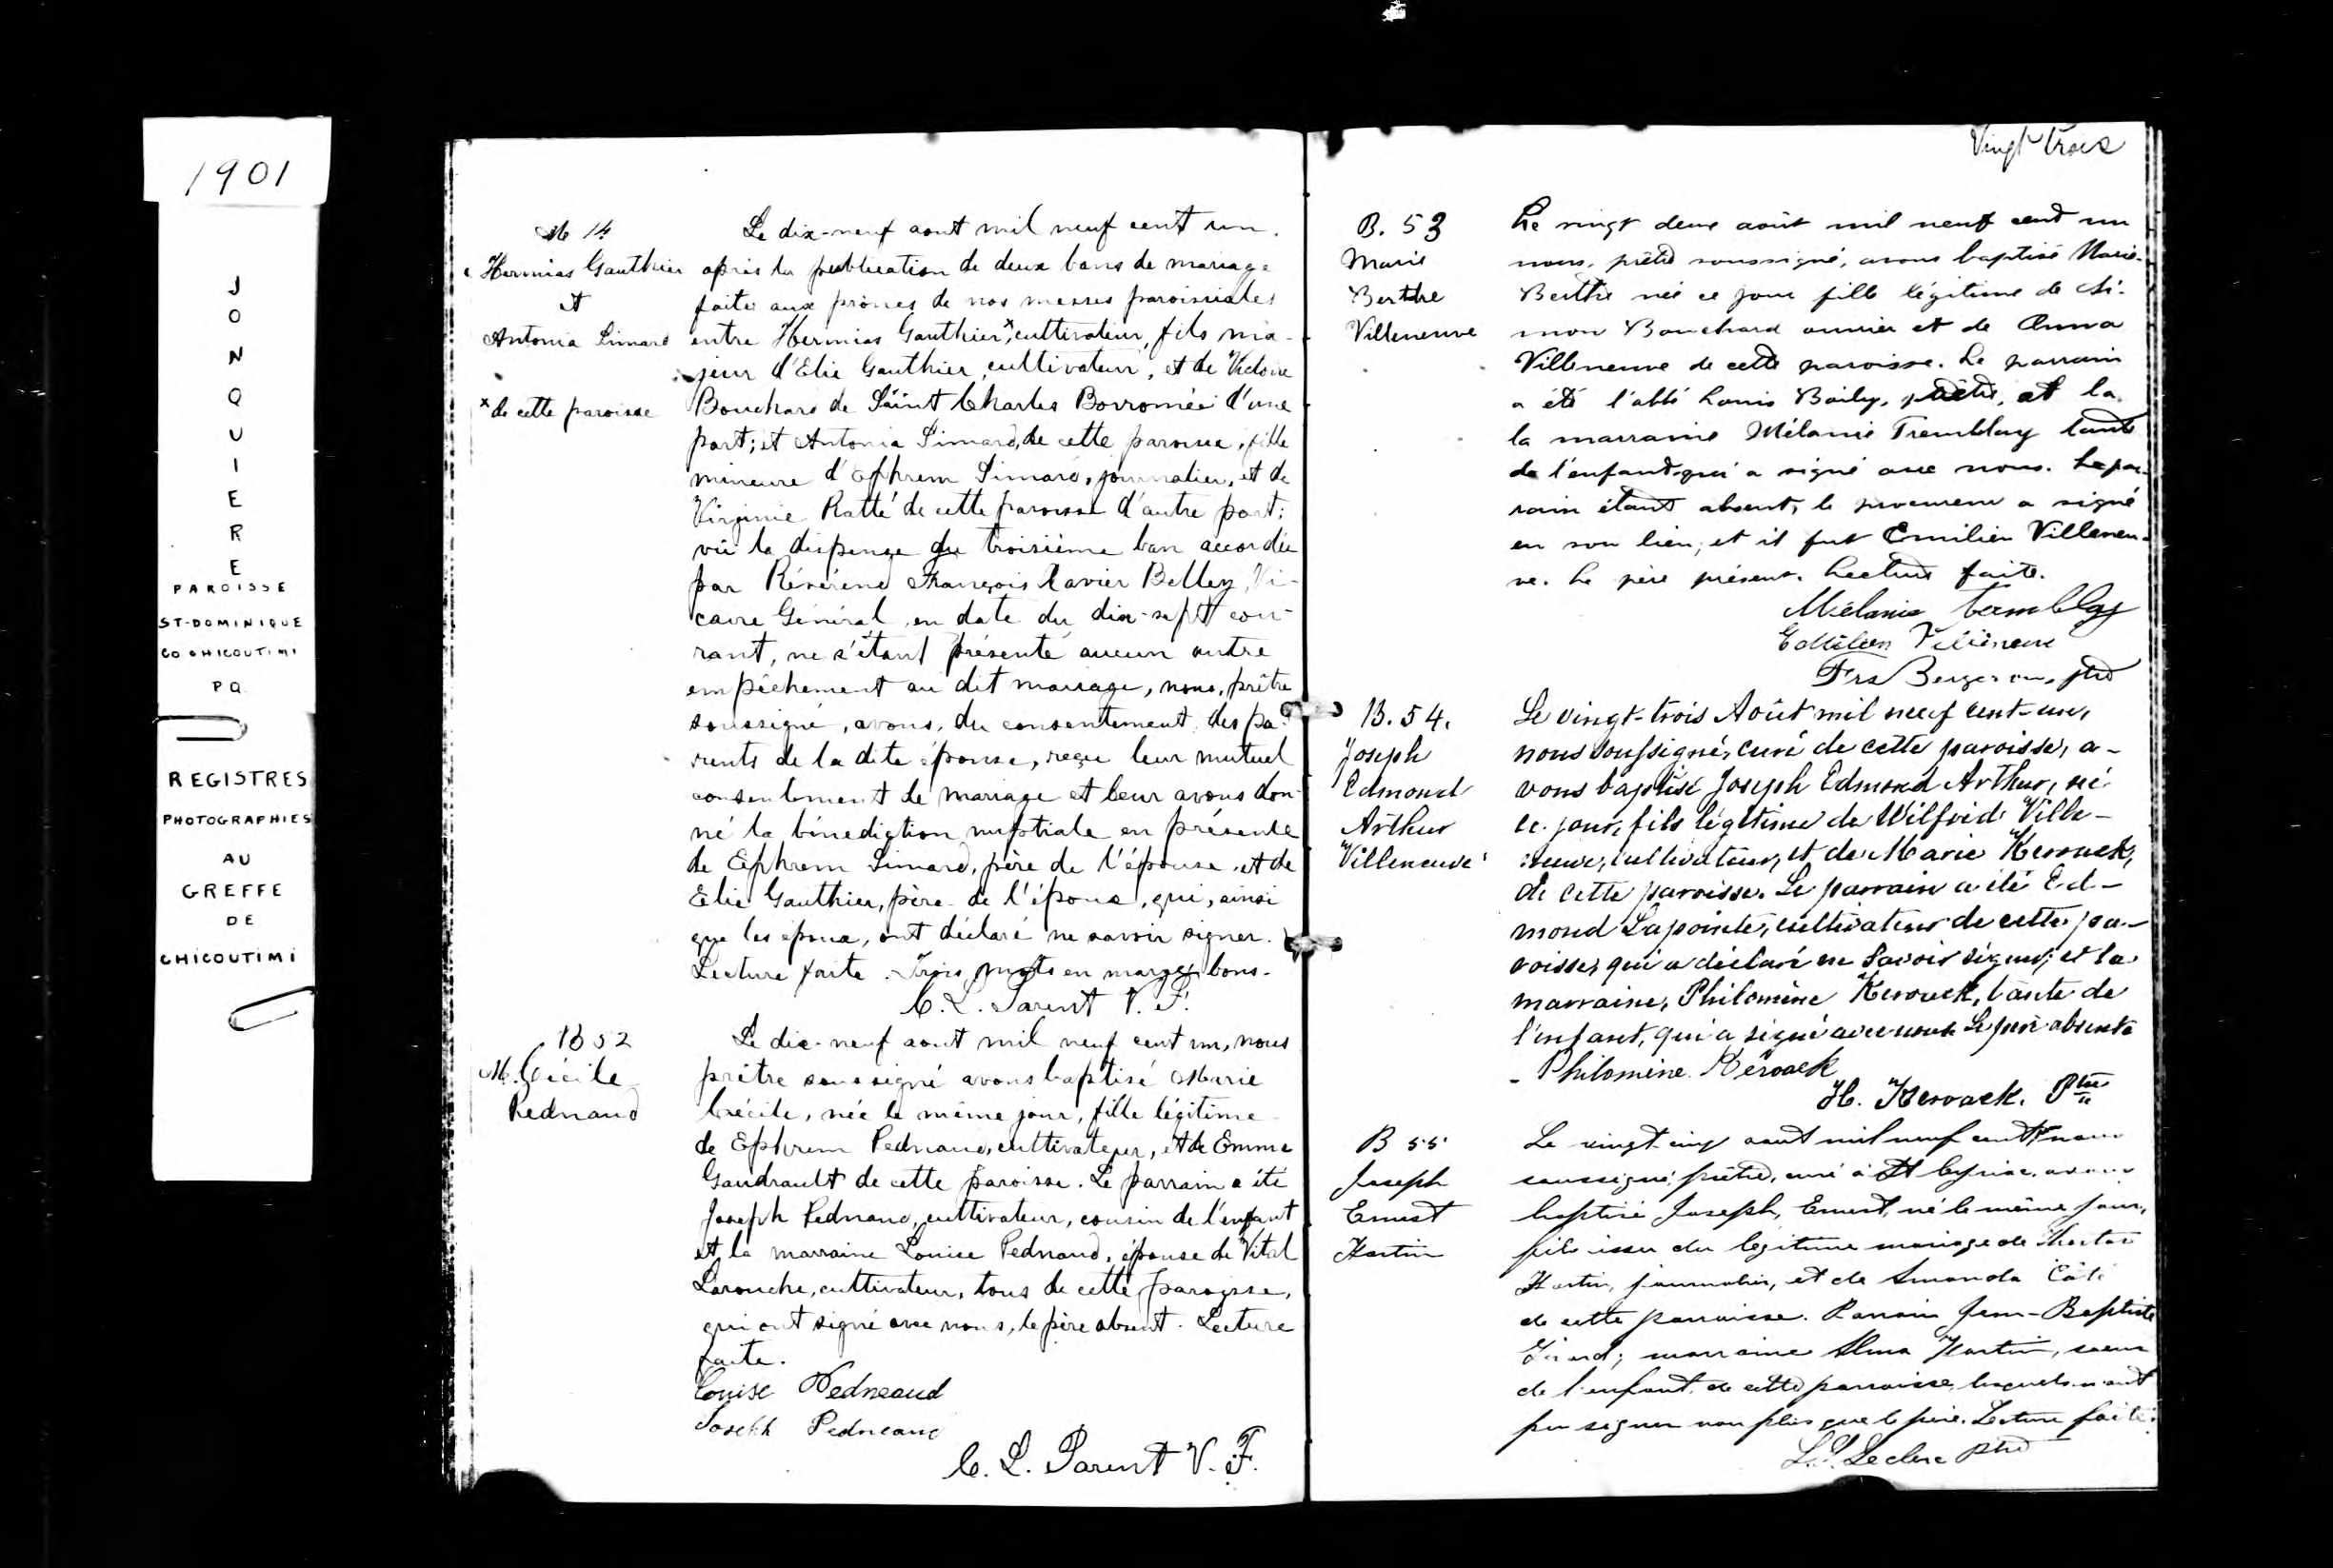 1901
JONQUIERE
PAROISSE
ST-DOMINIQUE
CO CHICOUTIMI
PQ
REGISTRES
PHOTOGRAPHIES
AU
GREFFE
DE
CHICOUTIMI
M 14
Hermias Gauthier
et
Antonia Simard
x de cette paroisse
Le dix-neuf aout mil neuf cent un.
après la publication de deux bans de mariage
faite aux prônes de nos messes paroissiales
entre Hermias Gauthier x, cultivateur, fils ma-
jeur d'Elie Gauthier, cultivateur, et de Victoire
Bouchard de Saint Charles Borromée d'une
part; et Antonia Simard, de cette paroisse, fille
mineure d'Ephrem Simard, journalier, et de
Virginie Ratté de cette paroisse d'autre part;
vû la dispense du troisième ban accordée
par Révérend François Xavier Belley, Vi-
caire Général, en date du dix-sept cou-
rant, ne s'étant présenté aucun autre
empêchement au dit mariage, nous, prêtre
soussigné, avons, du consentement des pa-
rents de la dite épouse, reçu leur mutuel
consentement de mariage et leur avons don-
né la bénédiction nuptiale en présence
de Ephrem Simard, père de l'épouse, et de
Elie Gauthier, père de l'époux, qui, ainsi
que les époux, ont déclaré ne savoir signer.
Lecture faite. Trois mots en marge bons.
C. L. Parent V. F.
B 52
M. Cécile
Pednaud
Le dix-neuf aout mil neuf cent un, nous
prêtre soussigné avons baptisé Marie
Cécile, née le même jour, fille légitime
de Ephrem Pednaud, cultivateur, et de Emma
Gaudrault de cette paroisse. Le parrain a été
Joseph Pednaud, cultivateur, cousin de l'enfant
et la marraine Louise Pednaud, épouse de Vital
Larouche, cultivateur, tous de cette paroisse,
qui ont signé avec nous, le père absent. Lecture
faite.
Louise Pedneaud
Joseph Pedneaud
C. L. Parent V. F.
Vingt trois
B. 53
Marie
Berthe
Villeneuve
Le vingt deux août mil neuf cent un
nous, prêtre soussigné, avons baptisé Marie-
Berthe née ce jour fille légitime de Si-
mon Bouchard ouvrier et de Anna
Villeneuve de cette paroisse. Le parrain
a été l'abbé Louis Boily, prêtre, et la
la marraine Mélanie Tremblay tante
de l'enfant qui a signé avec nous. Le par-
rain étant absent, le procureur a signé
en son lieu, et il fut Emilien Villeneu-
ve. Le père présent. Lecture faite.
Mélanie Tremblay
Emilien Villeneuve
Frs Bergeron, ptre
B. 54.
Joseph
Edmond
Arthur
Villeneuve
Le vingt-trois Août mil neuf cent-un,
nous soussigné, curé de cette paroisse, a-
vons baptisé Joseph Edmond Arthur, né
ce jour, fils légitime de Wilfrid Ville-
neuve, cultivateur, et de Marie Kerouack,
de cette paroisse. Le parrain a été Ed-
mond Lapointe, cultivateur de cette pa-
roisse, qui a déclaré ne savoir signer; et la
marraine, Philomène Kerouack, tante de
l'enfant, qui a signé avec nous. Le père absent.
- Philomène Kérouack
H. Kerouack. Ptre
B 55
Joseph
Ernest
Martin
Le vingt-cinq aout mil neuf cent un nous
soussigné, prêtre, curé à St Cyriac, avons
baptisé Joseph, Ernest, né le même jour,
fils issu du légitime mariage de
Martin, journalier, et de Amanda Côté
de cette parroisse. Parrain Jean-Baptiste
Girard; marraine Alma Martin, soeur
de l'enfant, de cette parroisse, lesquels n'ont
pu signer non plus que le père. Lecture faite.
Leclerc ptre